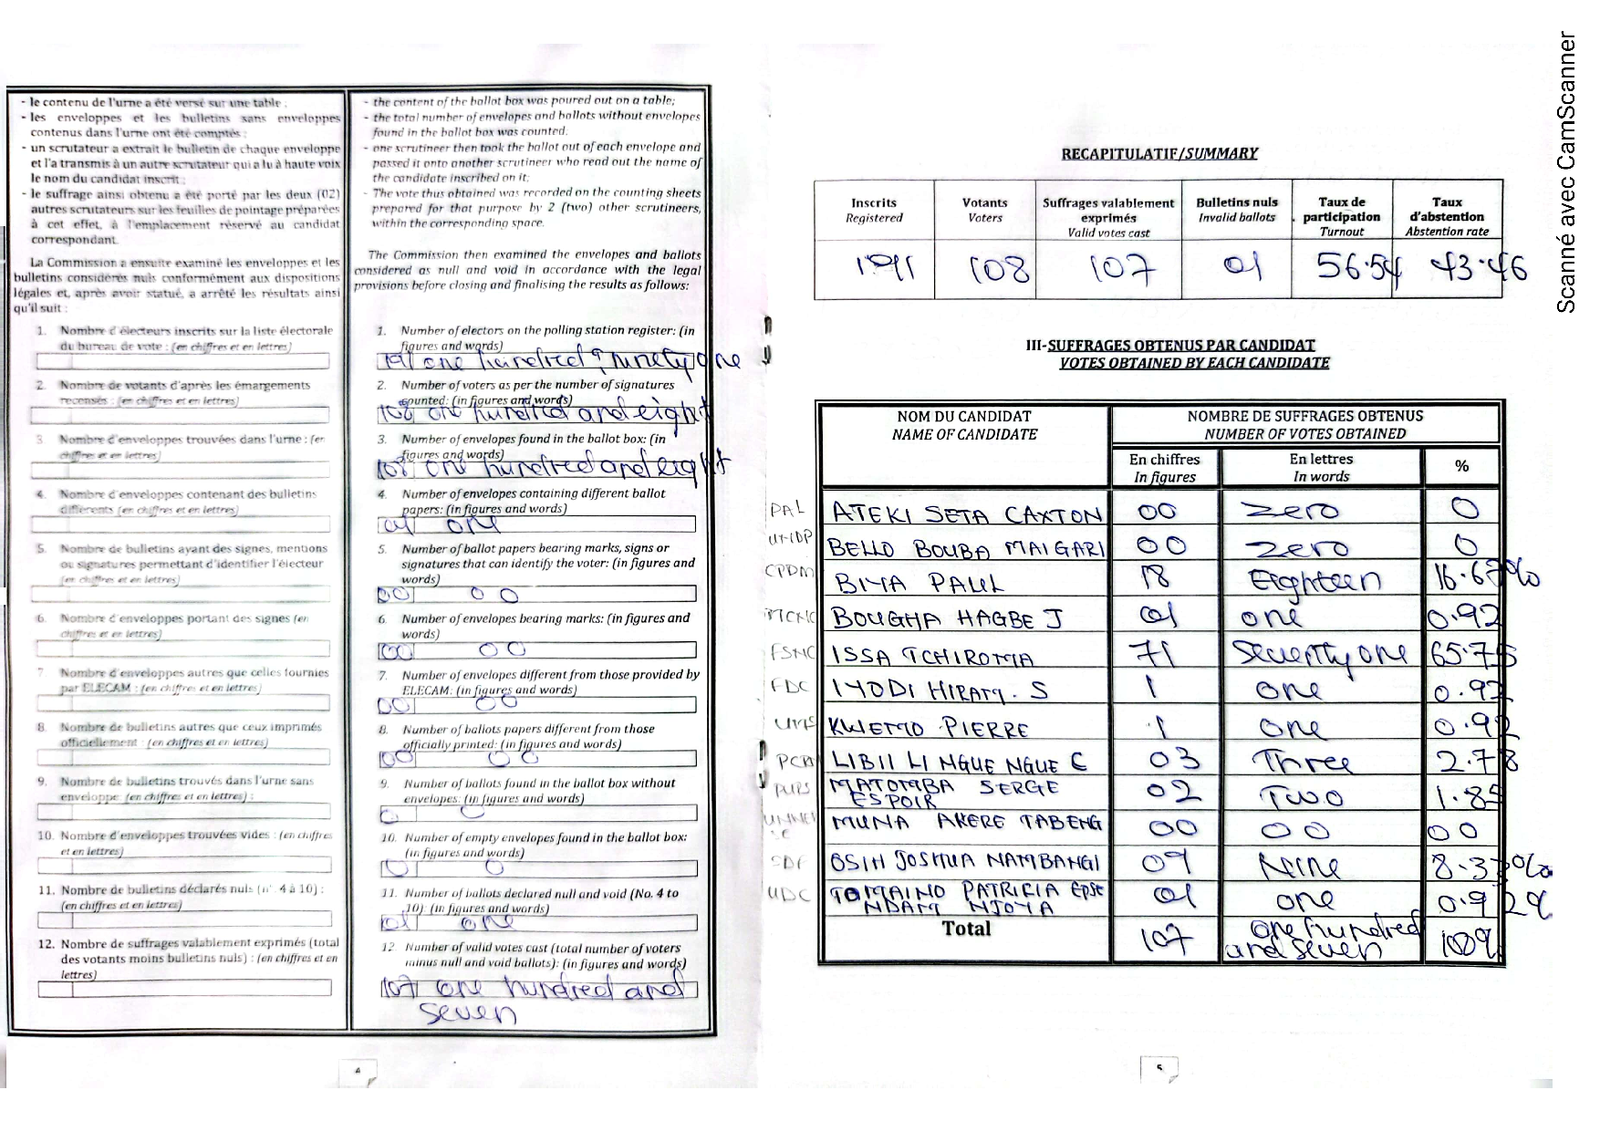 - le contenu de l'urne a été versé sur une table ;
- les enveloppes et les bulletins sans enveloppes
contenus dans l'urne ont été comptés ;
- un scrutateur a extrait le bulletin de chaque enveloppe
et l'a transmis à un autre scrutateur qui a lu à haute voix
le nom du candidat inscrit ;
- le suffrage ainsi obtenu a été porté par les deux (02)
autres scrutateurs sur les feuilles de pointage préparées
à cet effet, à l'emplacement réservé au candidat
correspondant.
La Commission a ensuite examiné les enveloppes et les
bulletins considérés nuls conformément aux dispositions
légales et, après avoir statué, a arrêté les résultats ainsi
qu'il suit :
1. Nombre d'électeurs inscrits sur la liste électorale
du bureau de vote : (en chiffres et en lettres)
2. Nombre de votants d'après les émargements
recensés : (en chiffres et en lettres)
3. Nombre d'enveloppes trouvées dans l'urne : (en
chiffres et en lettres)
4. Nombre d'enveloppes contenant des bulletins
différents (en chiffres et en lettres)
5. Nombre de bulletins ayant des signes, mentions
ou signatures permettant d'identifier l'électeur
(en chiffres et en lettres)
6. Nombre d'enveloppes portant des signes (en
chiffres et en lettres)
7. Nombre d'enveloppes autres que celles fournies
par ELECAM : (en chiffres et en lettres)
8. Nombre de bulletins autres que ceux imprimés
officiellement (en chiffres et en lettres)
9. Nombre de bulletins trouvés dans l'urne sans
enveloppe: (en chiffres et en lettres) :
10. Nombre d'enveloppes trouvées vides : (en chiffres
et en lettres)
11. Nombre de bulletins déclarés nuls (n°. 4 à 10) :
(en chiffres et en lettres)
12. Nombre de suffrages valablement exprimés (total
des votants moins bulletins nuls) : (en chiffres et en
lettres)
- the content of the ballot box was poured out on a table;
- the total number of envelopes and ballots without envelopes
found in the ballot box was counted.
- one scrutineer then took the ballot out of each envelope and
passed it onto another scrutineer who read out the name of
the candidate inscribed on it;
- The vote thus obtained was recorded on the counting sheets
prepared for that purpose by 2 (two) other scrutineers,
within the corresponding space.
The Commission then examined the envelopes and ballots
considered as null and void in accordance with the legal
provisions before closing and finalising the results as follows:
1. Number of electors on the polling station register: (in
figures and words)
191 one hundred & ninety one
2. Number of voters as per the number of signatures
counted: (in figures and words)
108 one hundred and eight
3. Number of envelopes found in the ballot box: (in
figures and words)
108 one hundred and eight
4. Number of envelopes containing different ballot
papers: (in figures and words)
01 one
5. Number of ballot papers bearing marks, signs or
signatures that can identify the voter: (in figures and
words)
00 00
6. Number of envelopes bearing marks: (in figures and
words)
00 00
7. Number of envelopes different from those provided by
ELECAM: (in figures and words)
00 00
8. Number of ballots papers different from those
officially printed: (in figures and words)
00 00
9. Number of ballots found in the ballot box without
envelopes: (in figures and words)
0 0
10. Number of empty envelopes found in the ballot box:
(in figures and words)
0 0
11. Number of ballots declared null and void (No. 4 to
10): (in figures and words)
01 one
12. Number of valid votes cast (total number of voters
minus null and void ballots): (in figures and words)
107 one hundred and
seven
4
RECAPITULATIF/SUMMARY
Inscrits Registered
Votants Voters
Suffrages valablement exprimés Valid votes cast
Bulletins nuls Invalid ballots
Taux de participation Turnout
Taux d'abstention Abstention rate
191 108 107 01 56.54 43.46
III-SUFFRAGES OBTENUS PAR CANDIDAT
VOTES OBTAINED BY EACH CANDIDATE
NOM DU CANDIDAT NAME OF CANDIDATE
NOMBRE DE SUFFRAGES OBTENUS
NUMBER OF VOTES OBTAINED
En chiffres In figures
En lettres In words
%
PAL ATEKI SETA CAXTON 00 zero 0
UNDP BELLO BOUBA MAIGARI 00 zero 0
CPDM BIYA PAUL 18 Eighteen 16.67%
MCNC BOUGHA HAGBE J 01 one 0.92
FSNC ISSA TCHIROMA 71 Seventy one 65.75
FDC IYODI HIRAM. S 1 one 0.92
UMS KWEMO PIERRE 1 one 0.92
PCRN LIBII LI NGUE NGUE C 03 Three 2.78
PURS MATOMBA SERGE
ESPOIR 02 Two 1.85
MUNA AKERE TABENG 00 00 00
SDF OSIH JOSHUA NAMBANGI 09 Nine 8.33%
UDC TOMAINO PATRICIA EPSE
NDAM NJOYA 01 one 0.92%
Total 107 one hundred
and seven 100%
5
Scanné avec CamScanner